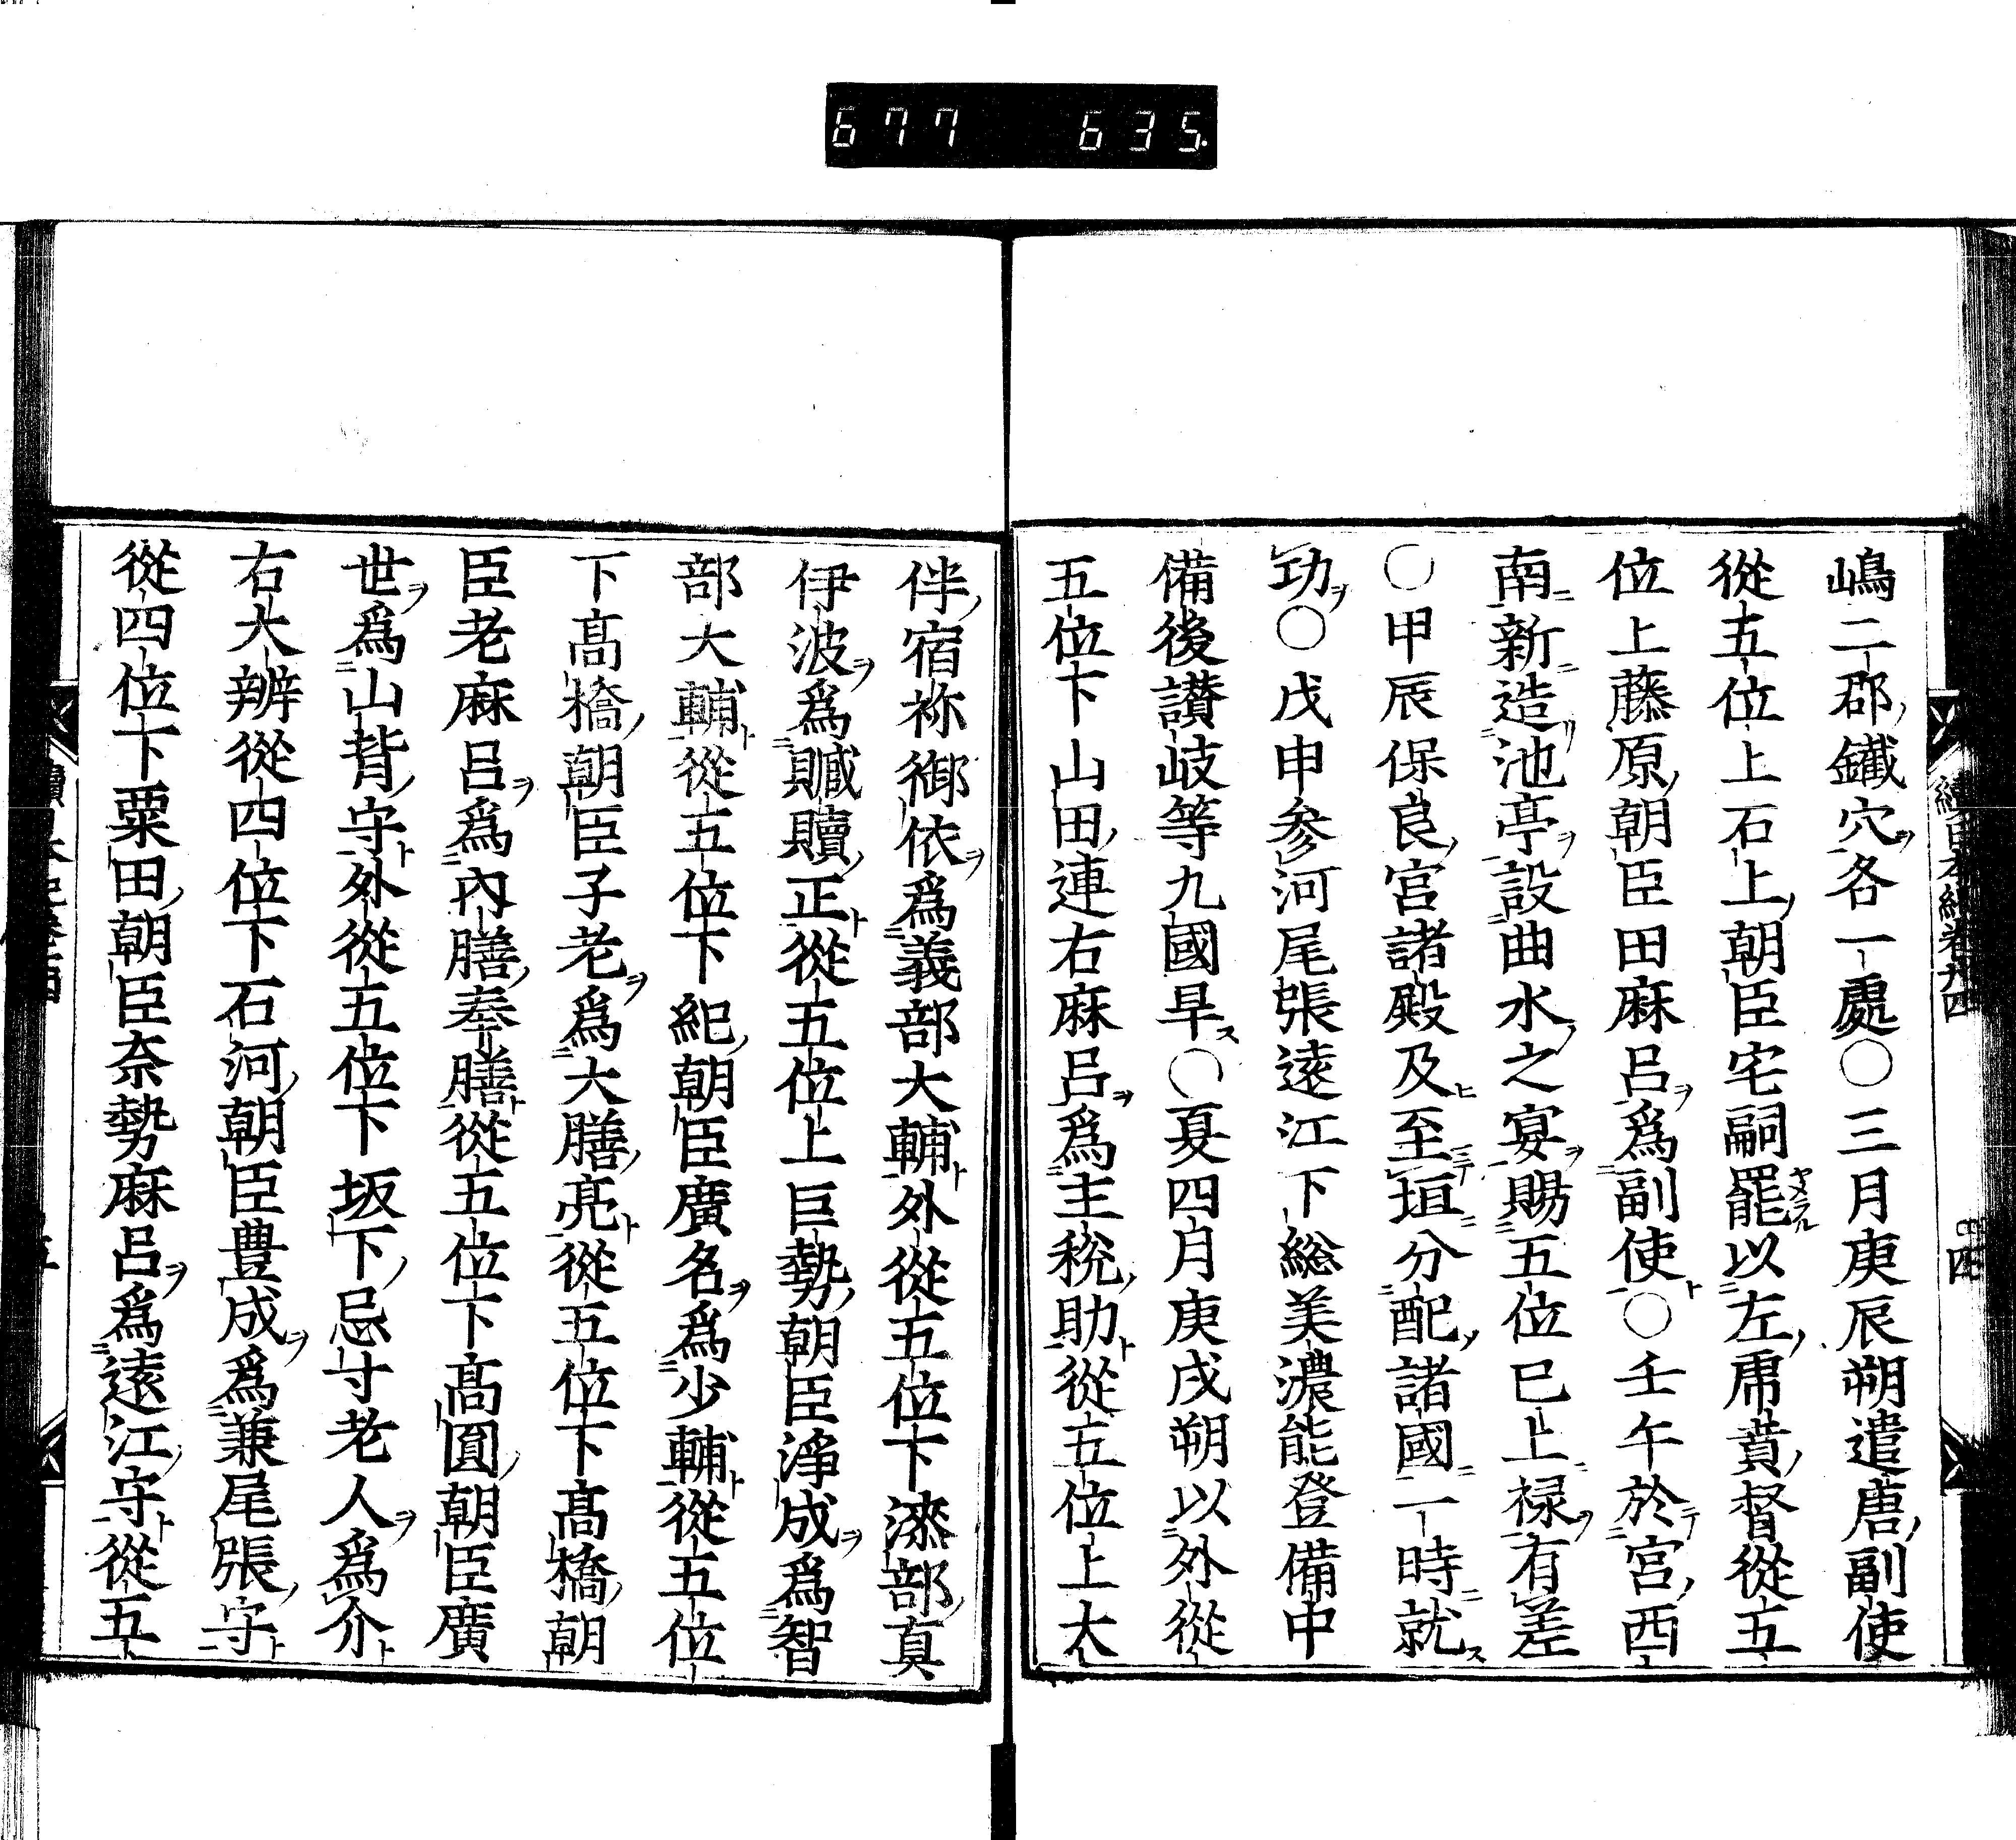 677 635.
嶋二郡鐵穴各一處○三月庚辰朔遣唐副使
從五位上石上朝臣宅嗣罷以左虎賁督從五
位上藤原朝臣田麻呂爲副使○壬午於宮西
南新造池亭設曲水之宴賜五位已上祿有差
○甲辰保良宮諸殿及至垣分配諸國一時就
功○戊申参河尾張遠江下総美濃能登備中
備後讃岐等九國旱○夏四月庚戌朔以外從
五位下山田連右麻呂爲主税助從五位上大
伴宿祢御依爲義部大輔外從五位下漆部直
伊波爲贓贖正從五位上巨勢朝臣淨成爲智
部大輔從五位下紀朝臣廣名爲少輔從五位
下髙橋朝臣子老爲大膳亮從五位下髙橋朝
臣老麻呂爲內膳奉膳從五位下髙圓朝臣廣
世爲山背守外從五位下坂下忌寸老人爲介
右大辨從四位下石河朝臣豊成爲兼尾張守
從四位下粟田朝臣奈勢麻呂爲遠江守從五